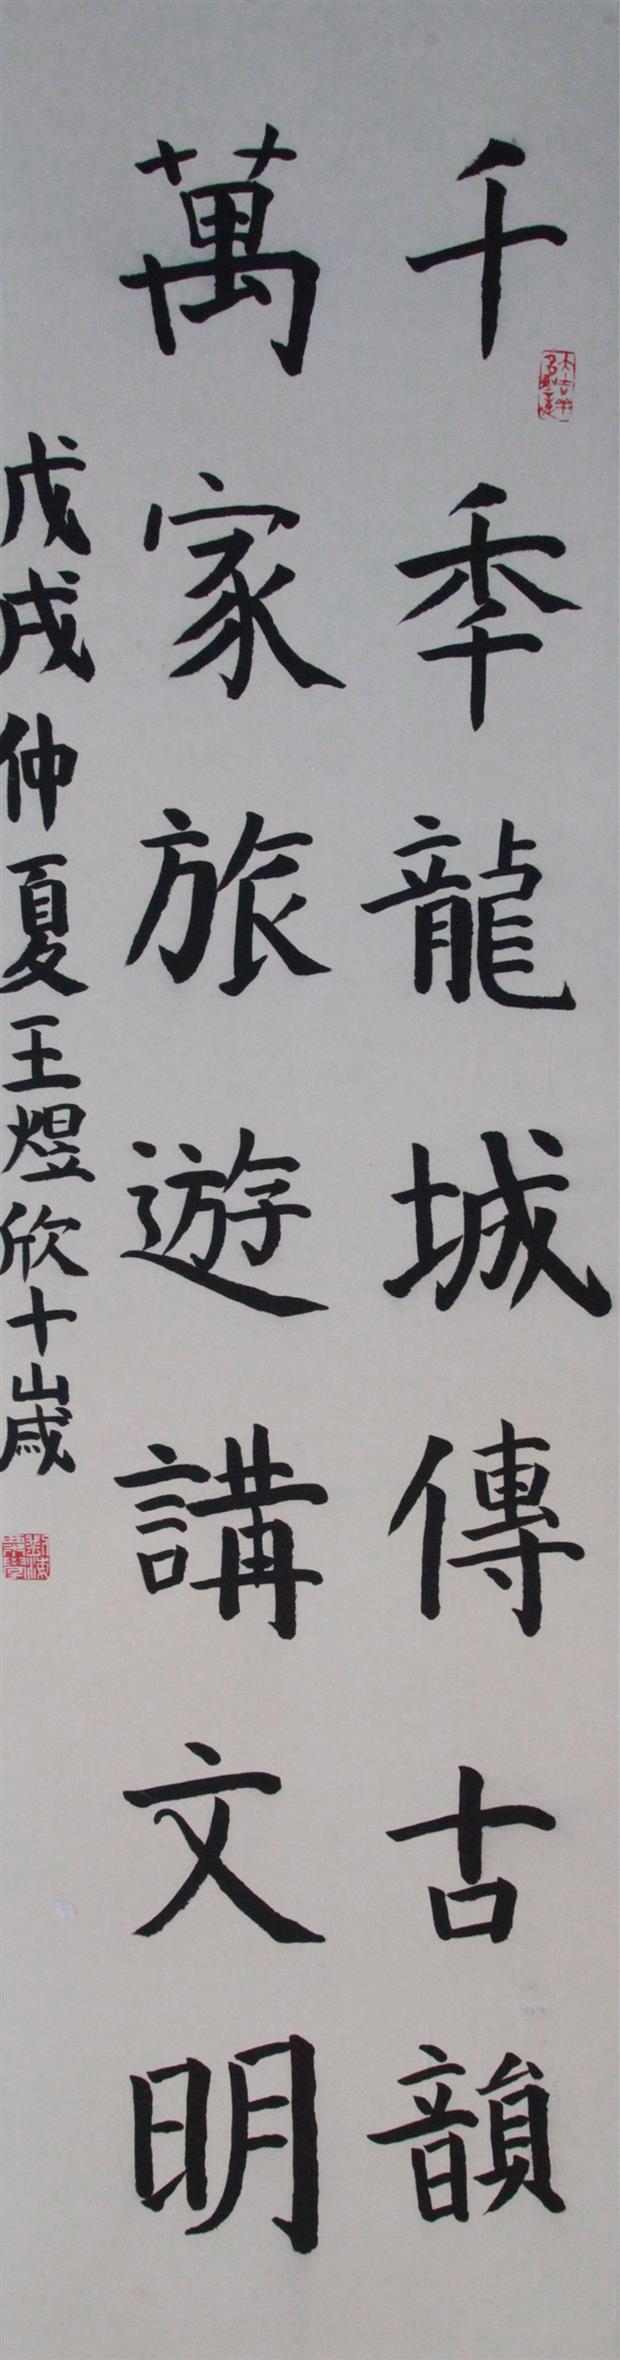 千秊龍城傳古韻
萬家旅遊講文明
戊戌仲夏王煜欣十歲